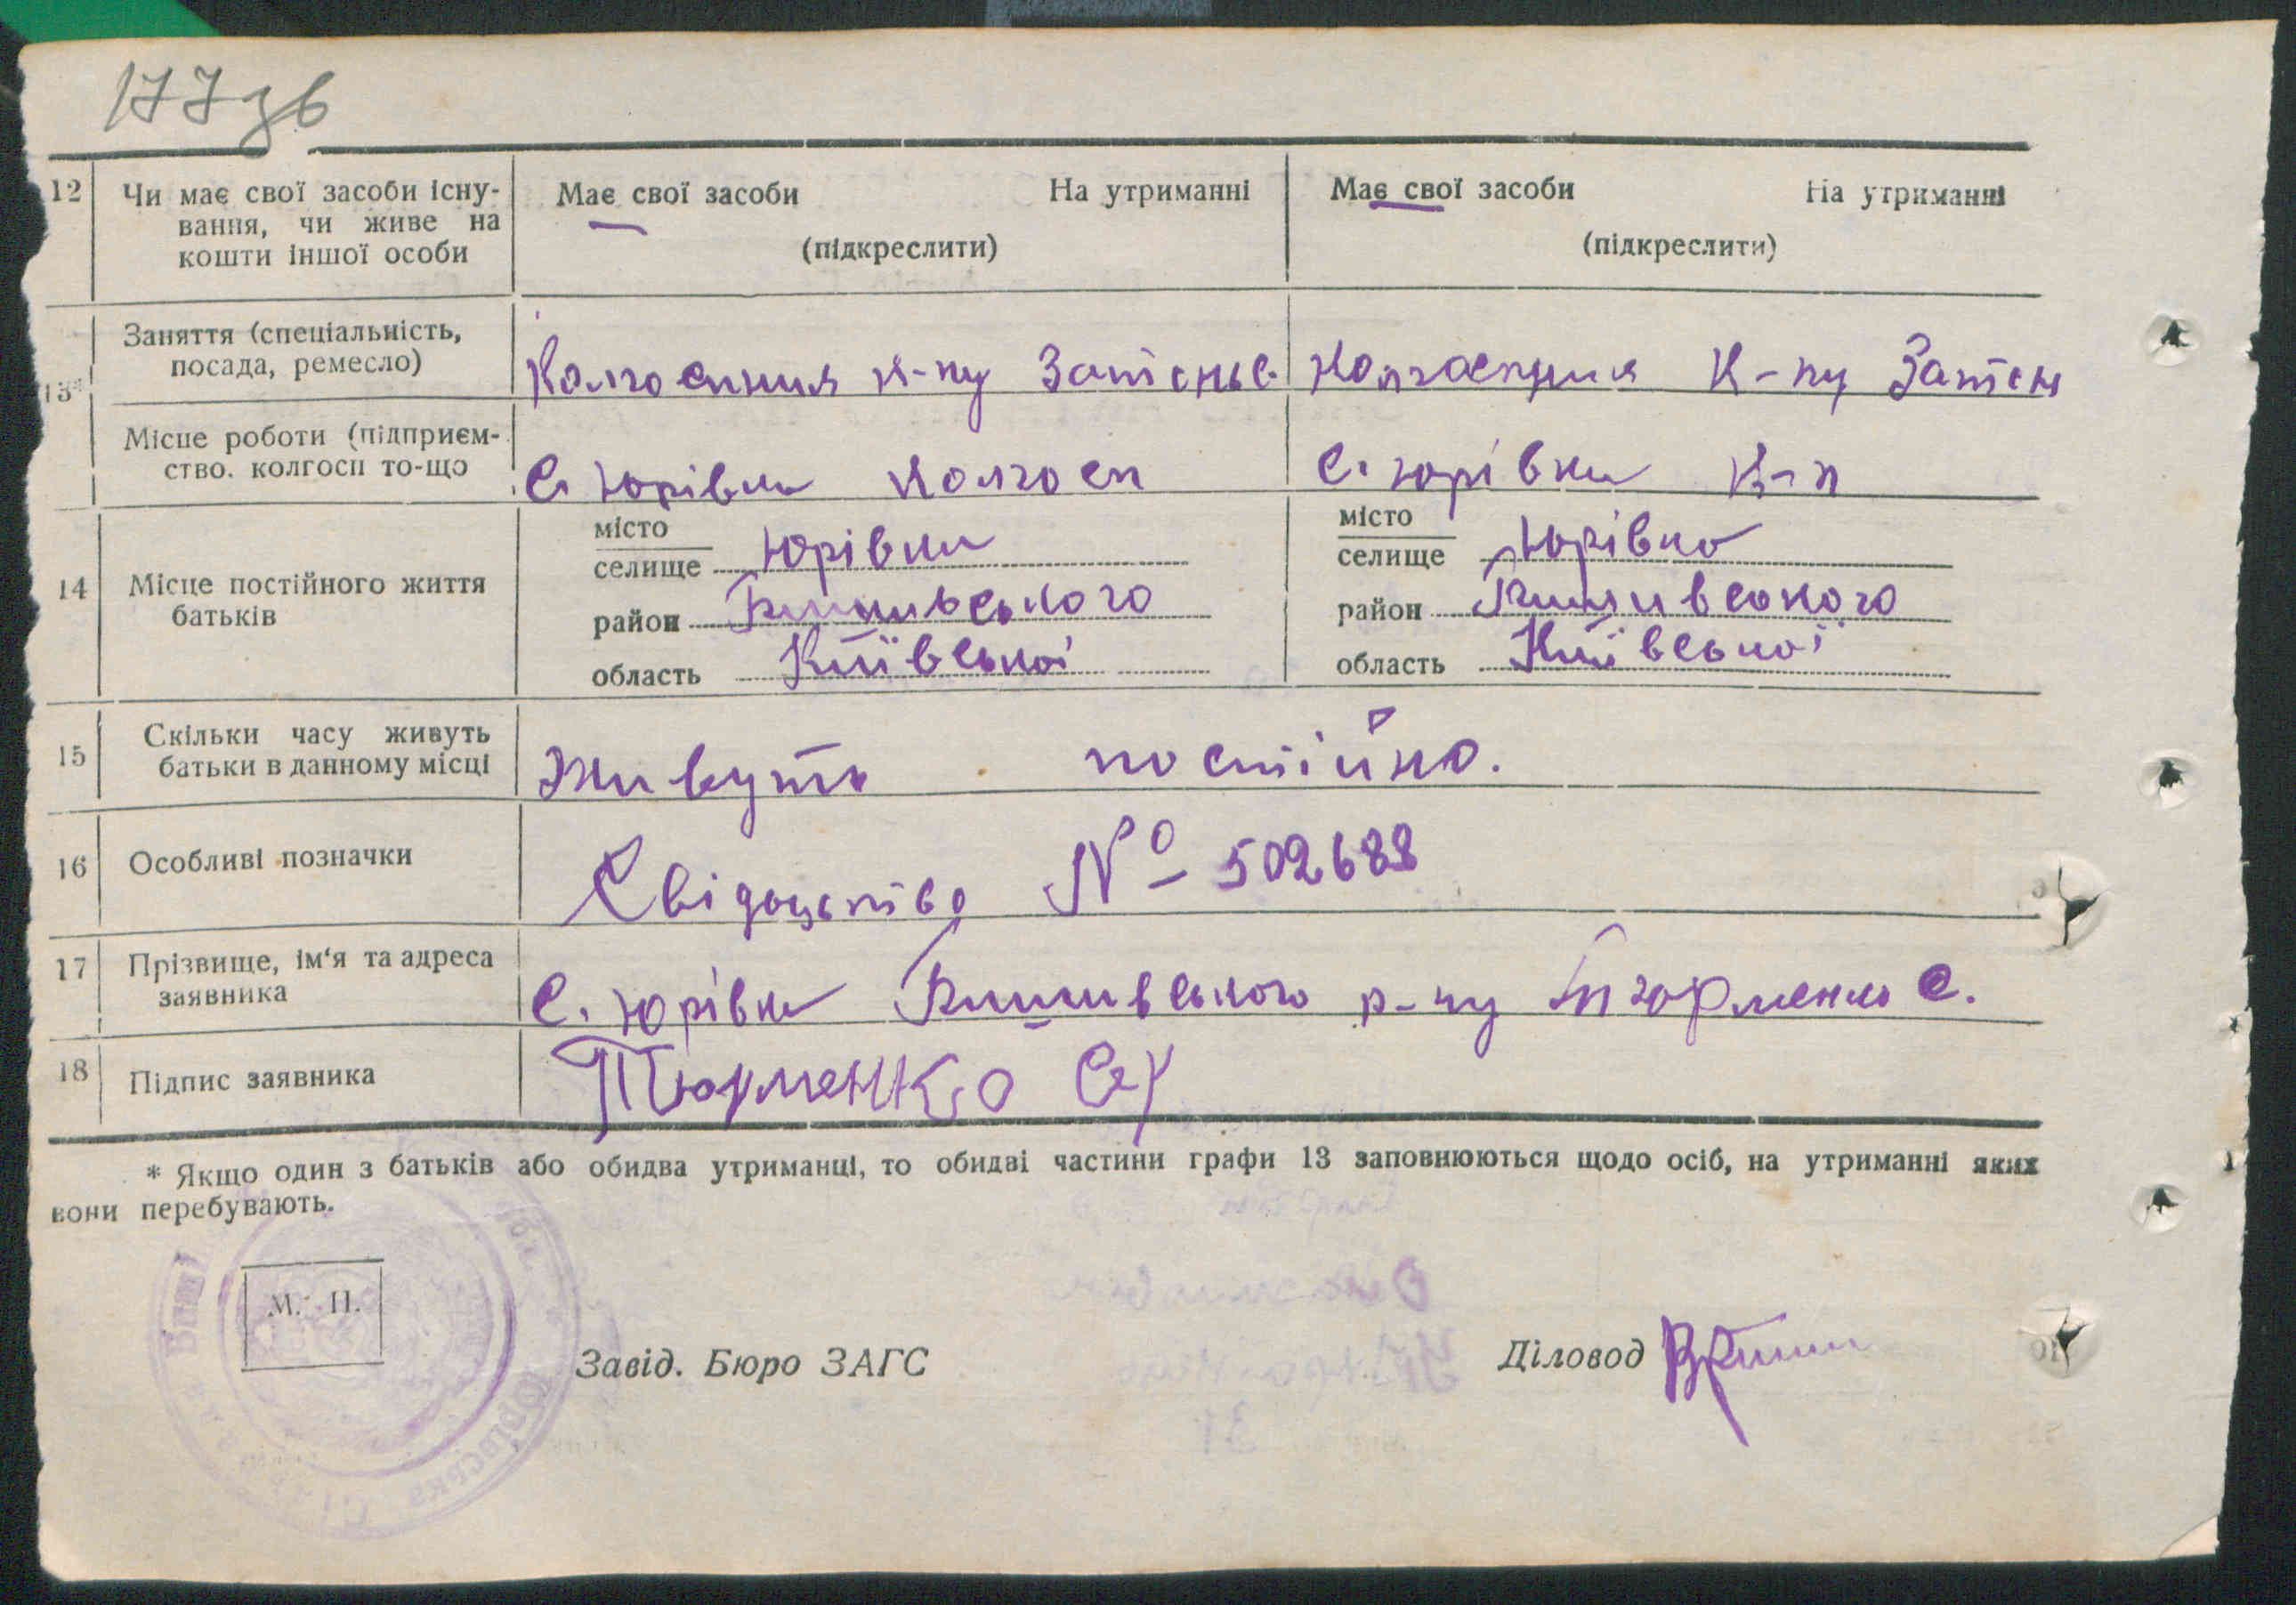 177зв
12 Чи має свої засоби існу- Має свої засоби На утриманні Має свої засоби На утриманні
вання, чи живе на (підкреслити) (підкреслити)
кошти іншої особи
13* Заняття (спеціальність,
посада, ремесло) к-пу К-пу
Місце роботи (підприєм-
ство. колгосп то-що С. Юрівка Колгосп С. Юрівка К-п
14 Місце постійного життя
батьків
місто
селище Юрівка
район
область Київської
місто
селище Юрівка
район
область Київської
15 Скільки часу живуть
батьки в данному місці Живуть постійно.
16 Особливі позначки Свідоцьтво № 502688
17 Прізвище, ім'я та адреса
заявника С. Юрівка р-ну Тюрменко С.
18 Підпис заявника Тюрменко
* Якщо один з батьків або обидва утриманці, то обидві частини графи 13 заповнюються щодо осіб, на утриманні яких
вони перебувають.
М. П.
Завід. Бюро ЗАГС Діловод
Юрівська